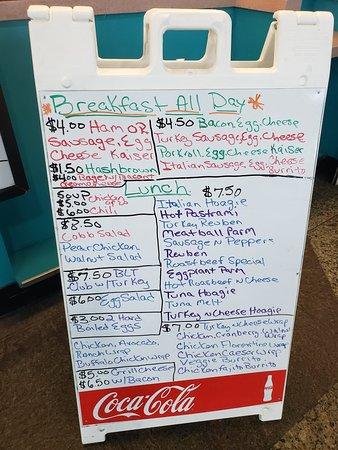 Breakfast All Day
$4.00 Ham OR
Sausage, Egg
Cheese Kaiser
$1.50 Hashbrown
$4.50 Bacon, Egg, Cheese
Turkey Sausage, Egg, Cheese
Porkroll, Egg, Cheese Kaiser
Italian Sausage, Egg, Cheese
Burrito
$4.00 Bagel w/
Lunch
Soup
Chicken
$6.00 Chili
$8.50
Cobb Salad
Pear Chicken
Walnut Salad
$7.50 BLT
Club w/ Turkey
$6.00 Egg Salad
$2.00 2 Hard
Boiled Eggs
Chicken, Avocado,
Ranch Wrap
Buffalo Chicken Wrap
$5.00 Grill Cheese
$6.50 w/ Bacon
$7.50
Italian Hoagie
Hot Pastrami
Turkey Reuben
Meatball Parm
Sausage N Peppers
Reuben
Roastbeef Special
Eggplant Parm
Hot Roastbeef N Cheese
Tuna Hoagie
Tuna Melt
Turkey N Cheese Hoagie
$7.00 Turkey N Cheese Wrap
Chicken, Cranberry, Walnut
Wrap
Chicken Florentine Wrap
Chicken Caesar Wrap
Veggie Burrito
Chicken Fajita Burrito
Coca-Cola